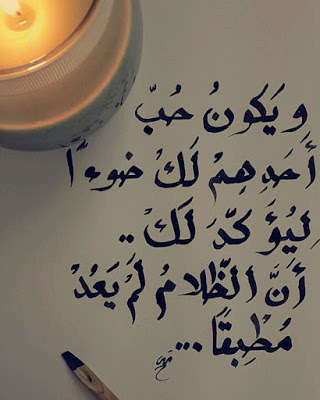 و يَكونُ حُبّ
أَحَدِهِمْ لَكْ ضوءًا
لِيُؤَكدَّ لَكْ ..
أَنَّ الظّلامُ لَمْ يَعُدْ
مُطِبقًا ...